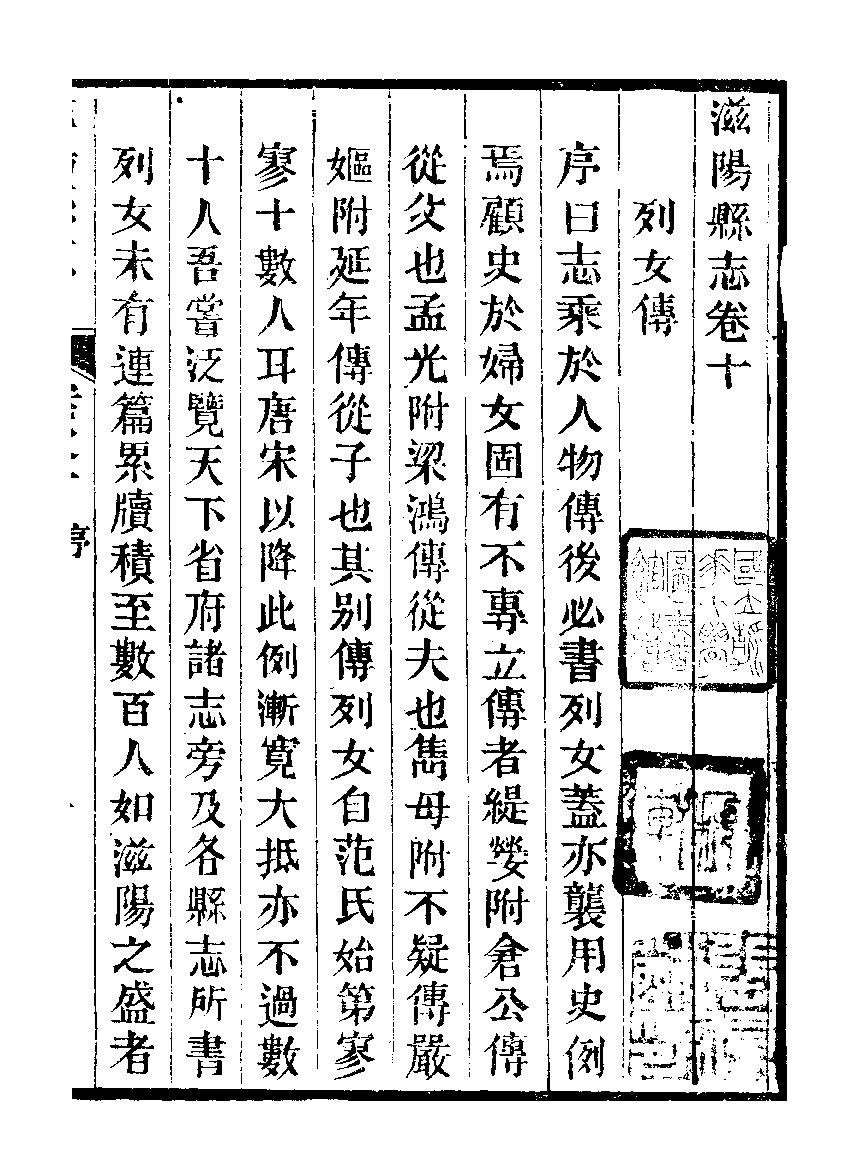 滋陽縣志卷十
列女傳
序曰志乘於人物傳後必書列女蓋亦襲用史例
焉顧史於婦女固有不專立傳者緹縈附倉公傳
從父也孟光附梁鴻傳從夫也雋母附不疑傳嚴
嫗附延年傳從子也其别傳列女自范氏始第寥
寥十數人耳唐宋以降此例漸寬大抵亦不過數
十人吾嘗泛覽天下省府諸志旁及各縣志所書
列女未有連篇累牘積至數百人如滋陽之盛者
序